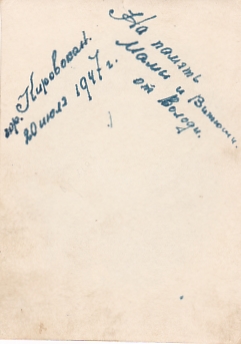 На память
Мамы и Витюши
от Володи.
гор. Кировокан.
20 июля 1947 г.